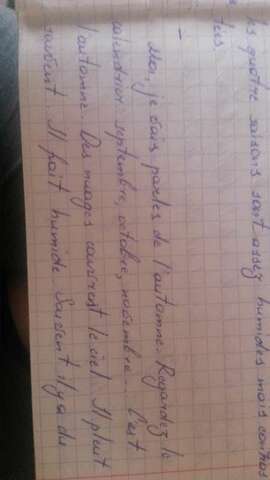 les quatre saisons sont assez humides mais contras
tées.
Moi, je vais parler de l'automne. Regardez le
calendrier septembre, octobre, novembre... C'est
l'automne. Des nuages couvrent le ciel. Il pleut
souvent. Il fait humide. Souvent il y a du